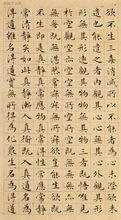 欲不生三毒消滅所以不能者為心未澄欲未
遣也能遣之者內觀其心心無其心外觀其形
形無其形遠觀其物物無其物三者既悟唯見
於空觀空亦空空無所空所空既無無無亦無
無無既無湛然常寂寂無所寂欲豈能生欲既
不生即是真靜真常應物真常得性常應常靜
常清靜矣如此清靜漸入真道既入真道名為
得道雖名得道實無所得為化眾生名為得道